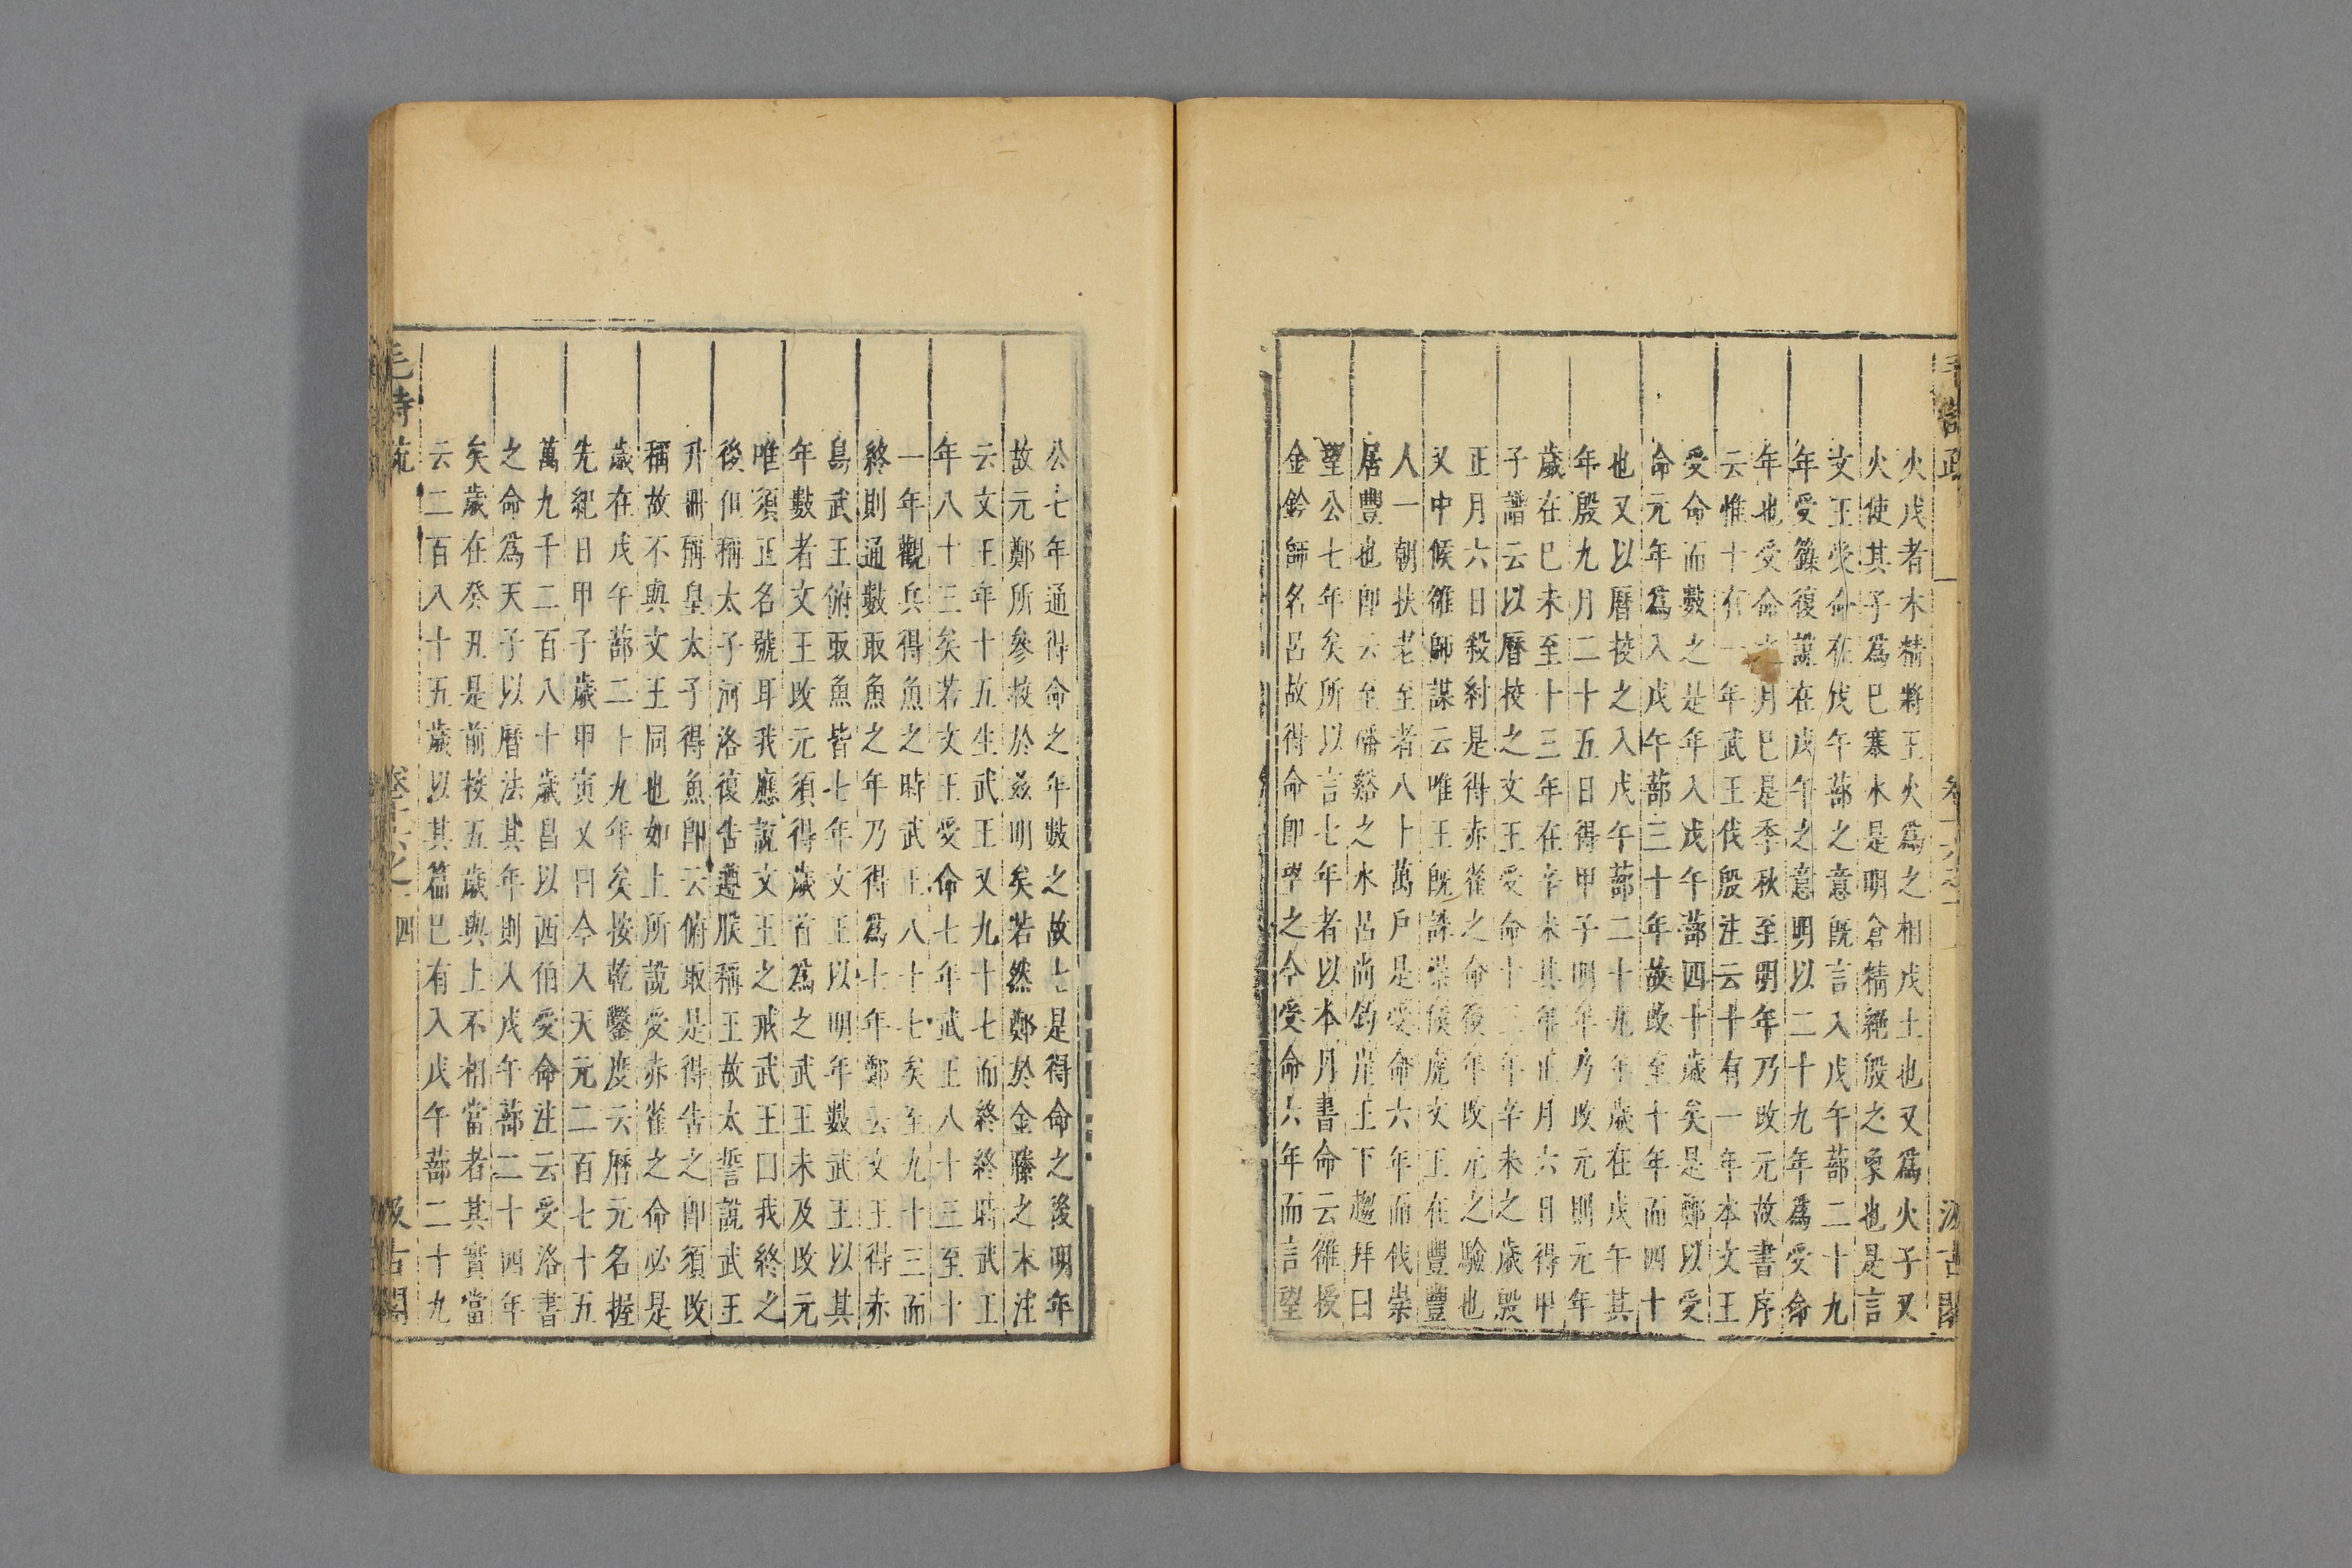 火戊者木精將王火爲之相戊土也又爲火子又
火使其子爲己塞水是明倉精絕殷之象也是言
文王受命在戊午蔀之意旣言入戊午蔀二十九
年受籙復說在戊午之意明以二十九年爲受命
年也受命 月已是季秋至明年乃改元故書序
云惟十有一年武王伐殷注云十有一年本文王
受命而數之是年入戊午蔀四十歲矣是鄭以受
命元年爲入戊午蔀三十年故改至十年而四十
也又以曆校之入戊午蔀二十九年歲在戊午其
年殷九月二十五日得甲子明年乃改元則元年
歲在巳未至十三年在辛未其年正月六日得甲
子譜云以曆校之文王受命十三年辛未之歲殷
正月六日殺紂是得赤雀之命後年改元之驗也
又中候雒師謀云唯王旣誅崇侯虎文王在豐豐
人一朝扶老至者八十萬戶是受命六年而伐崇
居豐也卽云至磻谿之水呂尚釣崖王下趨拜曰
望公七年矣所以言七年者以本月書命云雒授
金鈐師名呂故得命卽望之今受命六年而言望
公七年通得命之年數之故七是得命之後明年
故元鄭所參校於兹明矣若然鄭於金縢之木注
云文王年十五生武王又九十七而終終時武王
年八十三矣若文王受命七年武王八十三至十
一年觀兵得魚之時武王八十七矣至九十三而
終則通數取魚之年乃得爲七年鄭云文王得赤
烏武王俯取魚皆七年文王以明年數武王以其
年數者文王改元須得歲首爲之武王未及改元
唯須正名號耳我應說文王之戒武王曰我終之
後但稱太子河洛復告遵朕稱王故太誓說武王
升冊稱皇太子得魚卽云俯取是得告之卽須改
稱故不與文王同也如上所說受赤雀之命必是
歲在戊午蔀二十九年矣按乾鑿度云曆元名握
先紀日甲子歲甲寅又曰今入天元二百七十五
萬九千二百八十歲昌以西伯受命注云受洛書
之命爲天子以曆法其年則入戊午蔀二十四年
矣歲在癸丑是前校五歲與上不相當者其實當
云二百八十五歲以其篇已有入戊午蔀二十九
毛詩疏
卷十六之一
四
汲古閣